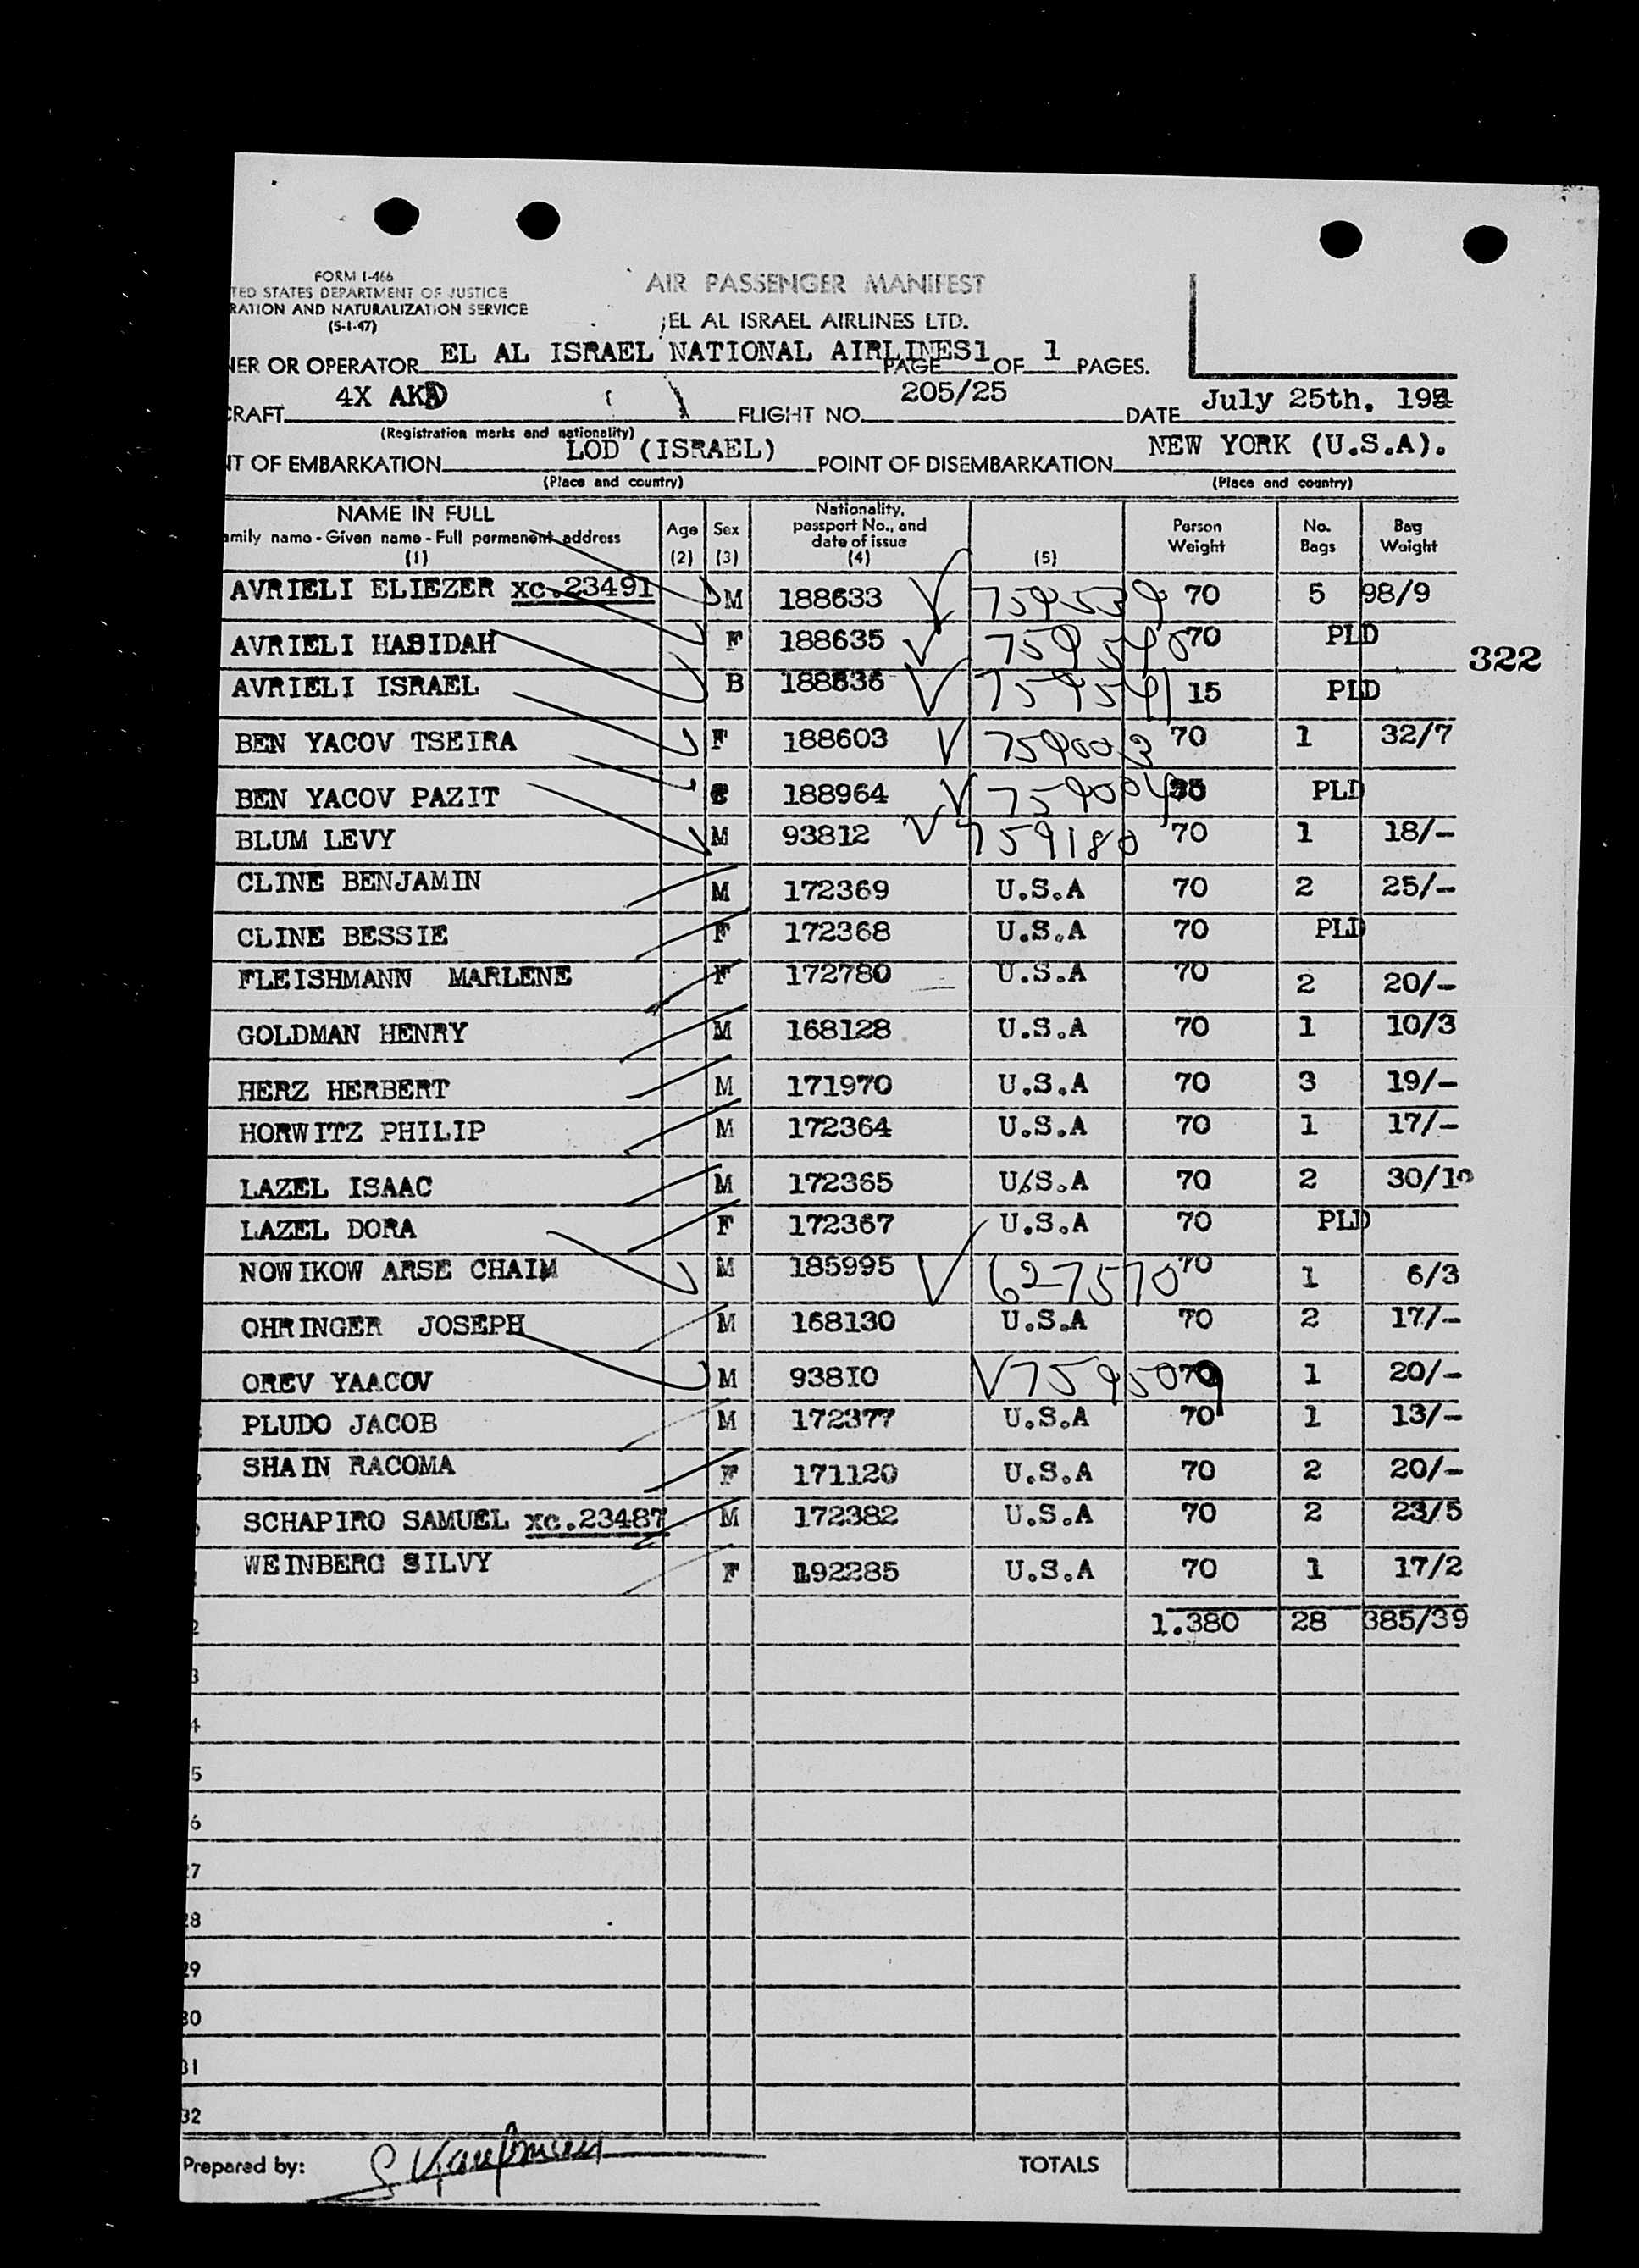 FORM I-466
TED STATES DEPARTMENT OF JUSTICE
RATION AND NATURALIZATION SERVICE
(5-1-47)
AIR PASSENGER MANIFEST
EL AL ISRAEL AIRLINES LTD.
NER OR OPERATOR EL AL ISRAEL NATIONAL AIRLINES PAGE 1 OF 1 PAGES.
CRAFT 4X AKD FLIGHT NO. 205/25 DATE July 25th, 195
(Registration marks and nationality)
NT OF EMBARKATION LOD (ISRAEL) POINT OF DISEMBARKATION NEW YORK (U.S.A).
(Place and country) (Place and country)
NAME IN FULL
amily name - Given name - Full permanent address
(1)
Age
(2)
Sex
(3)
Nationality,
passport No., and
date of issue
(4)
(5)
Person
Weight
No.
Bags
Bag
Weight
AVRIELI ELIEZER xc.23491 M 188633 √ 759539 70 5 98/9
AVRIELI HABIDAH F 188635 √ 759540 70 PLD
322
AVRIELI ISRAEL B 188636 √ 759541 15 PLD
BEN YACOV TSEIRA F 188603 √ 759003 70 1 32/7
BEN YACOV PAZIT 188964 √ 759004 PLD
BLUM LEVY M 93812 √ 759180 70 1 18/-
CLINE BENJAMIN M 172369 U.S.A 70 2 25/-
CLINE BESSIE F 172368 U.S.A 70 PLD
FLEISHMANN MARLENE F 172780 U.S.A 70 2 20/-
GOLDMAN HENRY M 168128 U.S.A 70 1 10/3
HERZ HERBERT M 171970 U.S.A 70 3 19/-
HORWITZ PHILIP M 172364 U.S.A 70 1 17/-
LAZEL ISAAC M 172365 U/S.A 70 2 30/10
LAZEL DORA F 172367 U.S.A 70 PLD
NOWIKOW ARSE CHAIM M 185995 √ 627570 70 1 6/3
OHRINGER JOSEPH M 168130 U.S.A 70 2 17/-
OREV YAACOV M 93810 √ 759509 70 1 20/-
PLUDO JACOB M 172377 U.S.A 70 1 13/-
SHAIN RACOMA F 171120 U.S.A 70 2 20/-
SCHAPIRO SAMUEL xc.23487 M 172382 U.S.A 70 2 23/5
WEINBERG SILVY F 192285 U.S.A 70 1 17/2
2 1.380 28 385/39
3
4
5
6
27
28
29
30
31
32
Prepared by: S Kaufman TOTALS